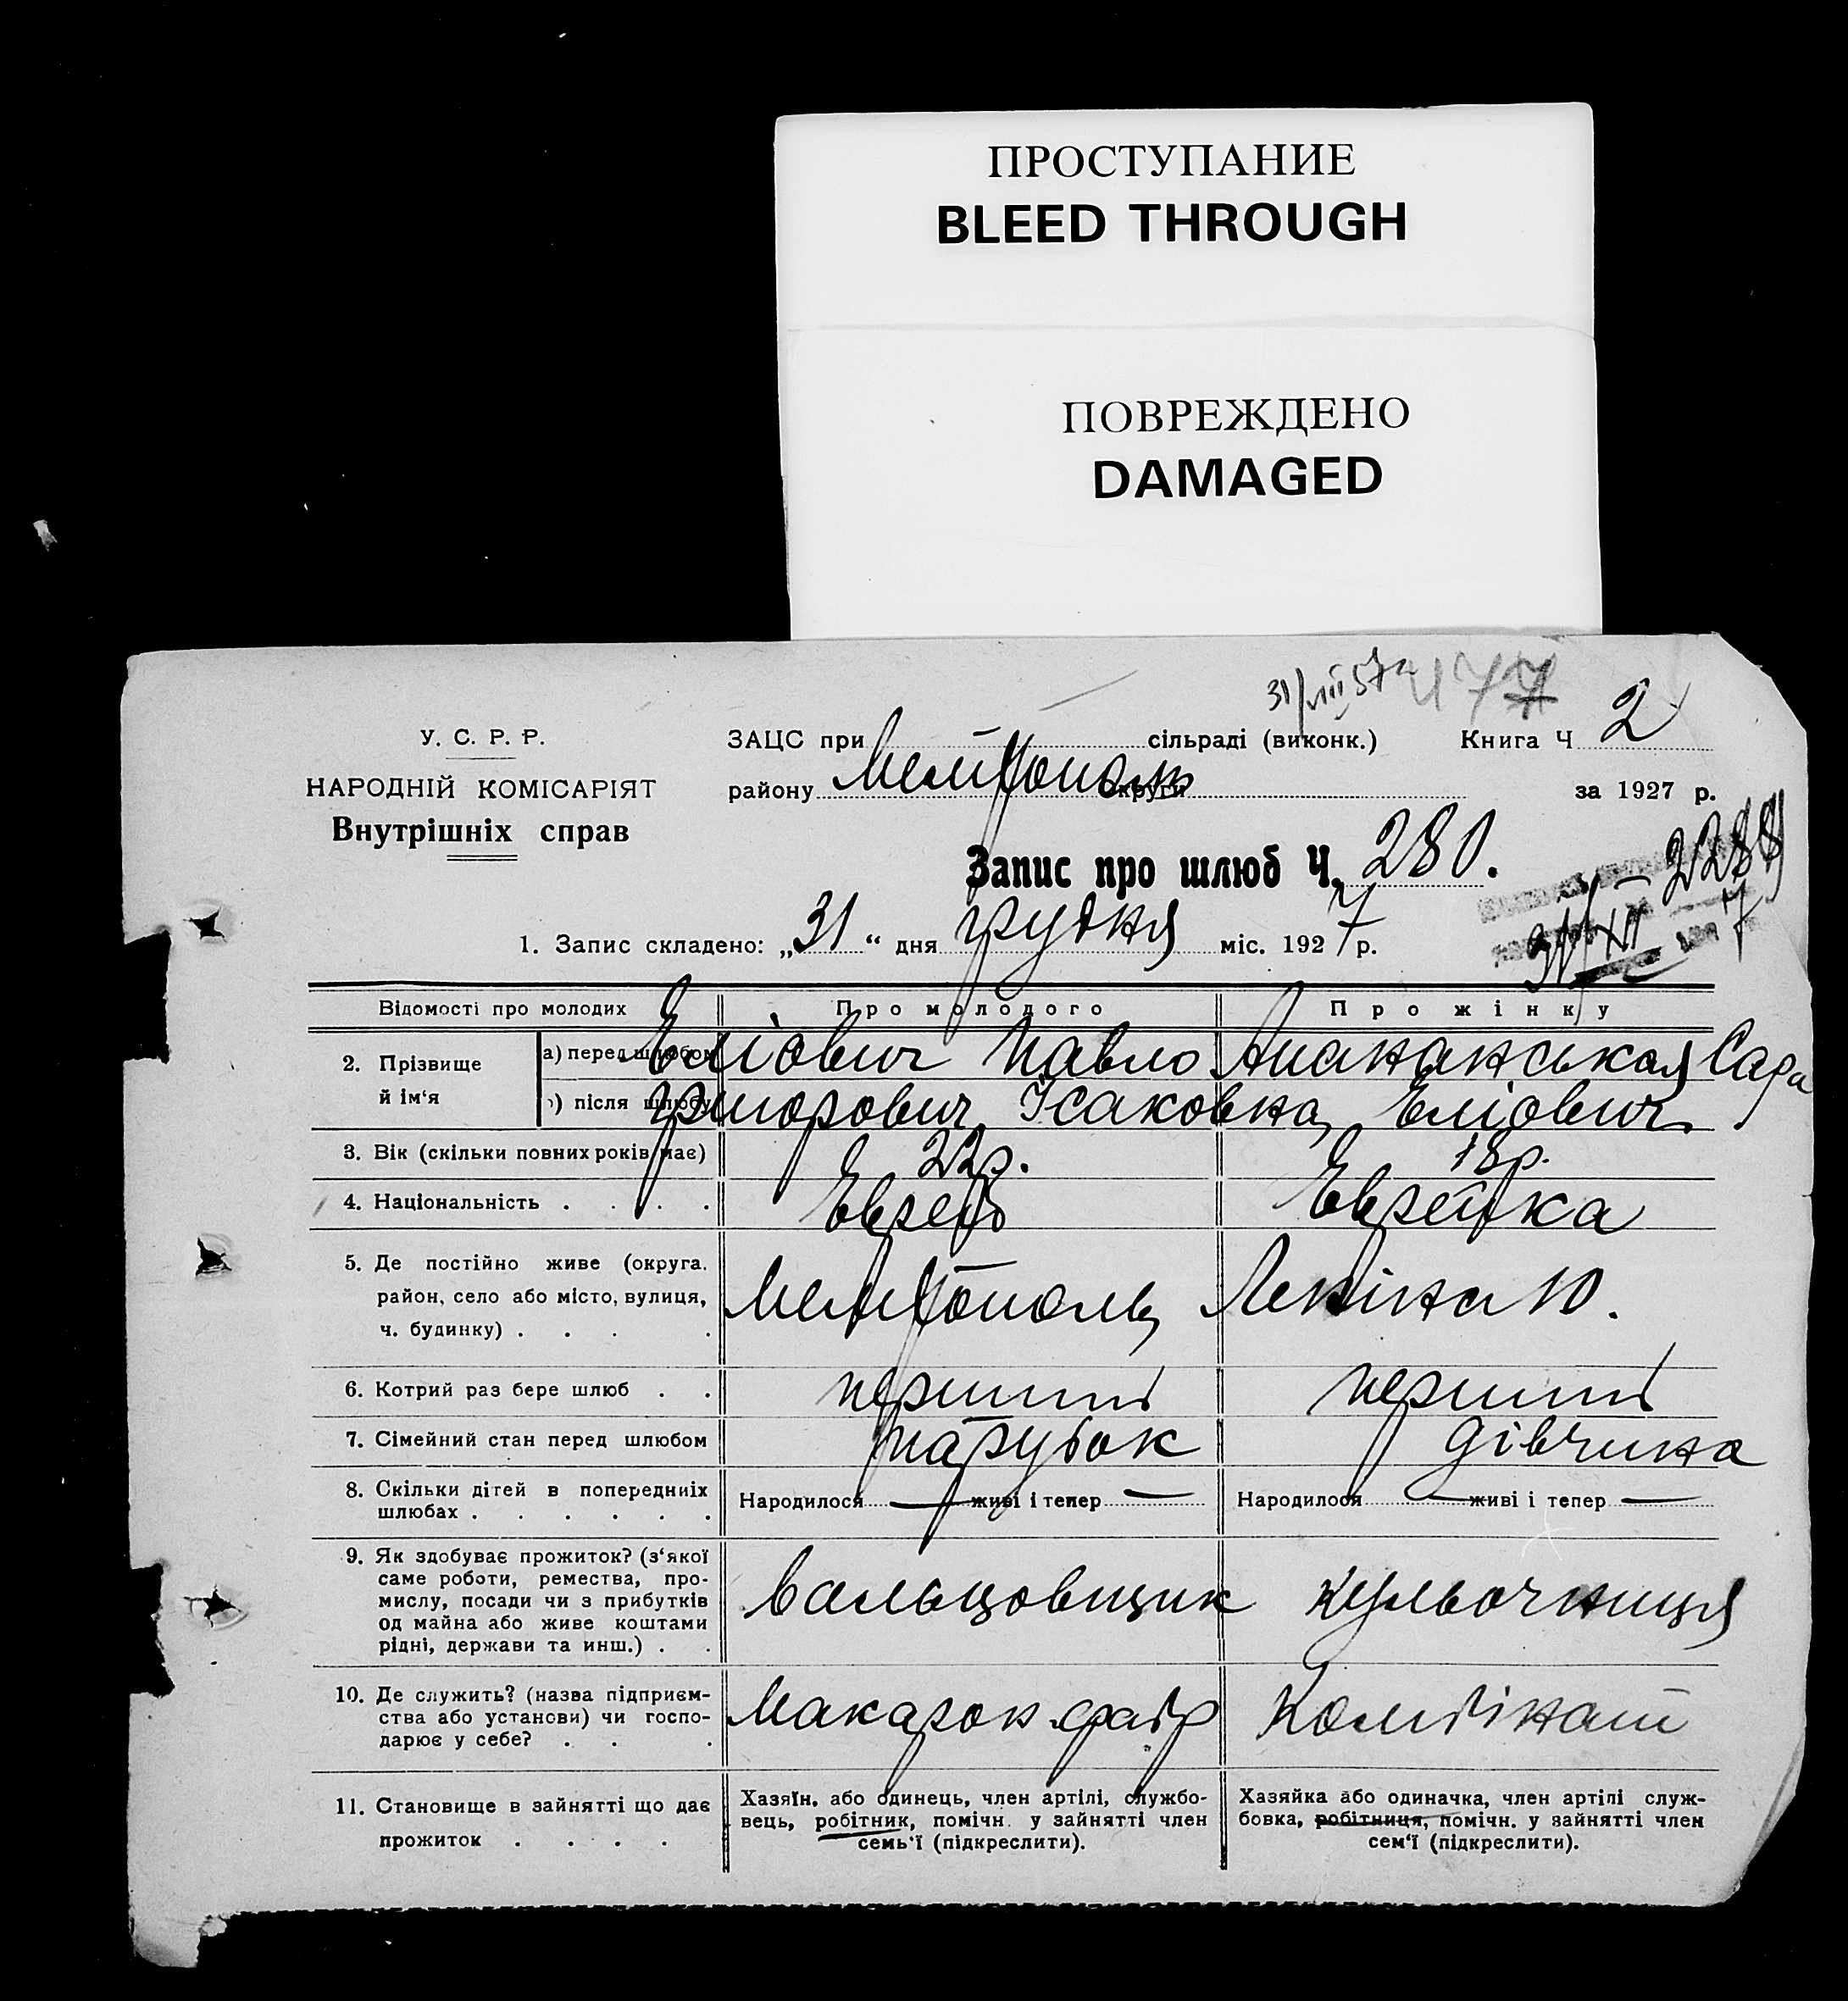 ПРОСТУПАНИЕ
BLEED THROUGH
ПОВРЕЖДЕНО
DAMAGED
31/VIII 57 477
У. С. Р. Р.
НАРОДНІЙ КОМІСАРІЯТ
Внутрішніх справ
ЗАЦС при сільраді (виконк.) Книга Ч 2
району Мелітополь округи за 1927 р.
Запис про шлюб Ч. 280.
31/XII
1. Запис складено: „31“ дня грудня міс. 1927 р.
Відомості про молодих Про молодого Про жінку
2. Прізвище й ім‘я
а) перед шлюбом Еліович Павло Сара
б) після шлюбу Григорович Ісаковна Еліович
3. Вік (скільки повних років має) 22 р. 18 р.
4. Національність . . . . Еврей Еврейка
5. Де постійно живе (округа,
район, село або місто, вулиця,
ч. будинку) . . . .
Мелітополь Леніна 10.
6. Котрий раз бере шлюб . . перший перший
7. Сімейний стан перед шлюбом парубок дівчина
8. Скільки дітей в попередніх
шлюбах . . . . . .
Народилося — живі і тепер — Народилося — живі і тепер —
9. Як здобуває прожиток? (з‘якої
саме роботи, ремества, про-
мислу, посади чи з прибутків
од майна або живе коштами
рідні, держави та инш.) . .
вальцовщик кульочниця
10. Де служить? (назва підприєм-
ства або установи) чи госпо-
дарює у себе? . . .
Макарон. фабр Комбінат
11. Становище в зайнятті що дає
прожиток . . . .
Хазяїн, або одинець, член артілі, службо-
вець, робітник, помічн. у зайнятті член
семь‘ї (підкреслити).
Хазяйка або одиначка, член артілі служ-
бовка, робітниця, помічн. у зайнятті член
сем‘ї (підкреслити).